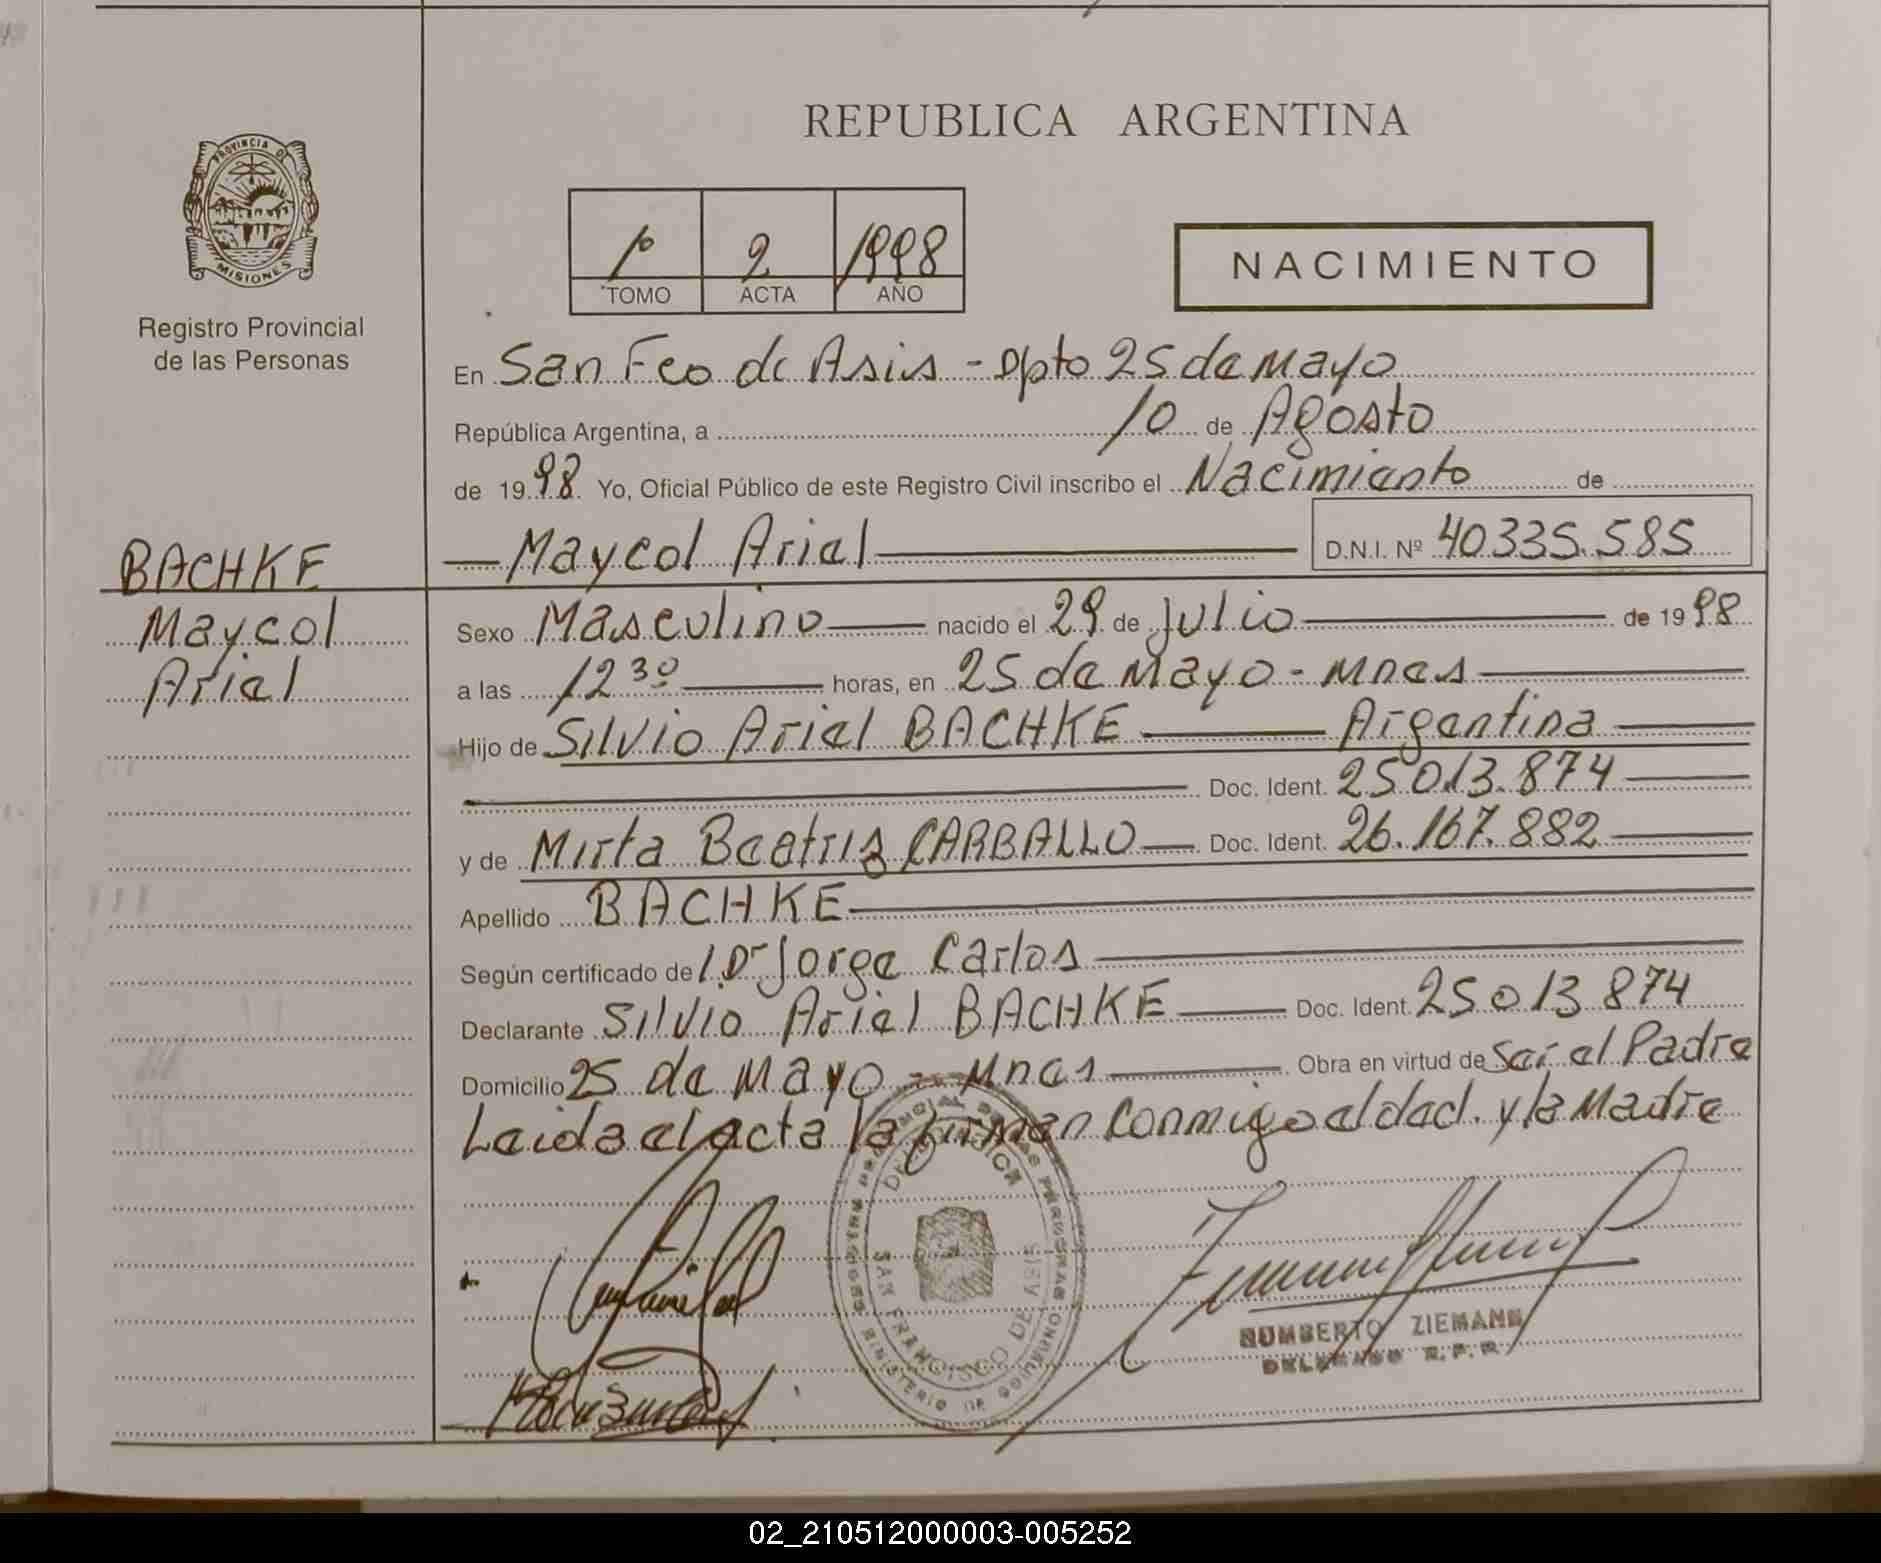 REPUBLICA ARGENTINA
PROVINCIA DE
MISIONES
Registro Provincial
de las Personas
1º 2 1998
TOMO ACTA AÑO
NACIMIENTO
En San Fco de Asis - Dpto 25 de Mayo
República Argentina, a 10 de Agosto
de 1998 Yo, Oficial Público de este Registro Civil inscribo el Nacimiento de
Maycol Ariel D.N.I. Nº 40335.585
BACHKE
Maycol
Ariel
Sexo Masculino nacido el 29 de Julio de 1998
a las 12 30 horas, en 25 de Mayo - Mnes
Hijo de Silvio Ariel BACHKE Argentina
Doc. Ident. 25.013.874
y de Mirta Beatriz CARBALLO Doc. Ident. 26.167.882
Apellido BACHKE
Según certificado del Dr Jorge Carlos
Declarante Silvio Ariel BACHKE Doc. Ident. 25013874
Domicilio 25 de Mayo - Mnes Obra en virtud de Ser el Padre
Leida el acta la firman Conmigo el dec. y la Madre
SAN FRANCISCO DE ASIS
MINISTERIO DE GOBIERNO
HUMBERTO ZIEMANN
DELEGADO R.P.P.
02_210512000003-005252